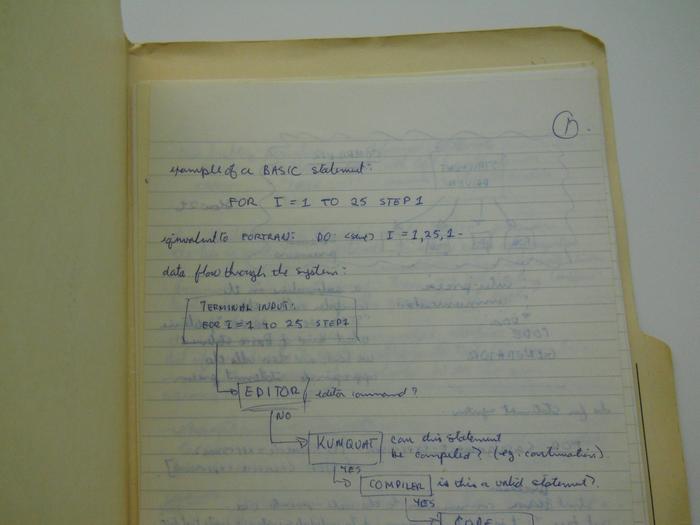 n.
example of a BASIC statement:
FOR I = 1 TO 25 STEP 1
equivalent to FORTRAN: DO I = 1, 25, 1
data flow through the system:
TERMINAL INPUT:
FOR I = 1 TO 25 STEP 1
EDITOR editor command?
NO
KUMQUAT can this statement
be compiled? (eg. continuation).
YES
COMPILER is this a valid statement?
YES
CODE